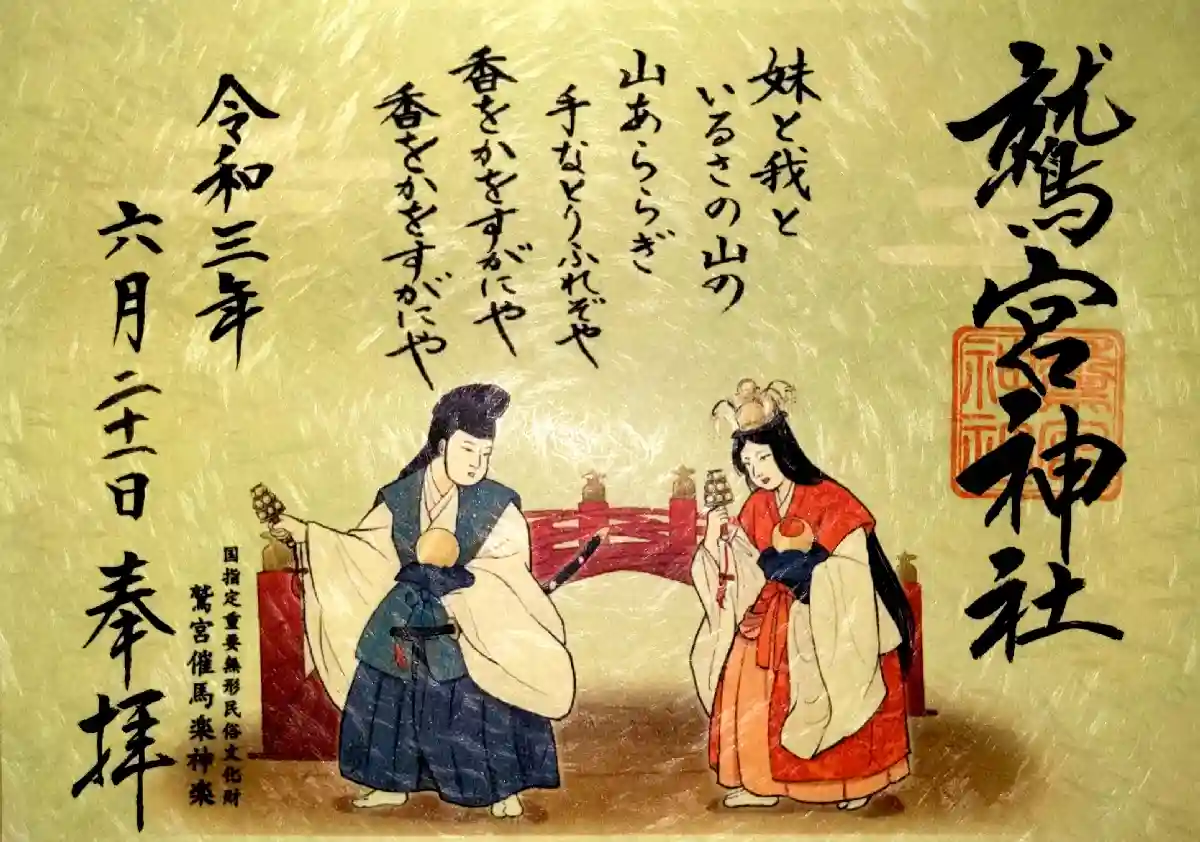 鷲宮神社
妹と我と
いるさの山の
山あららぎ
手なとりふれぞや
香をかをすがにや
香をかをすがにや
令和三年
六月二十一日
奉拝
国指定重要無形民俗文化財
鷲宮催馬楽神楽
鷲宮
神社